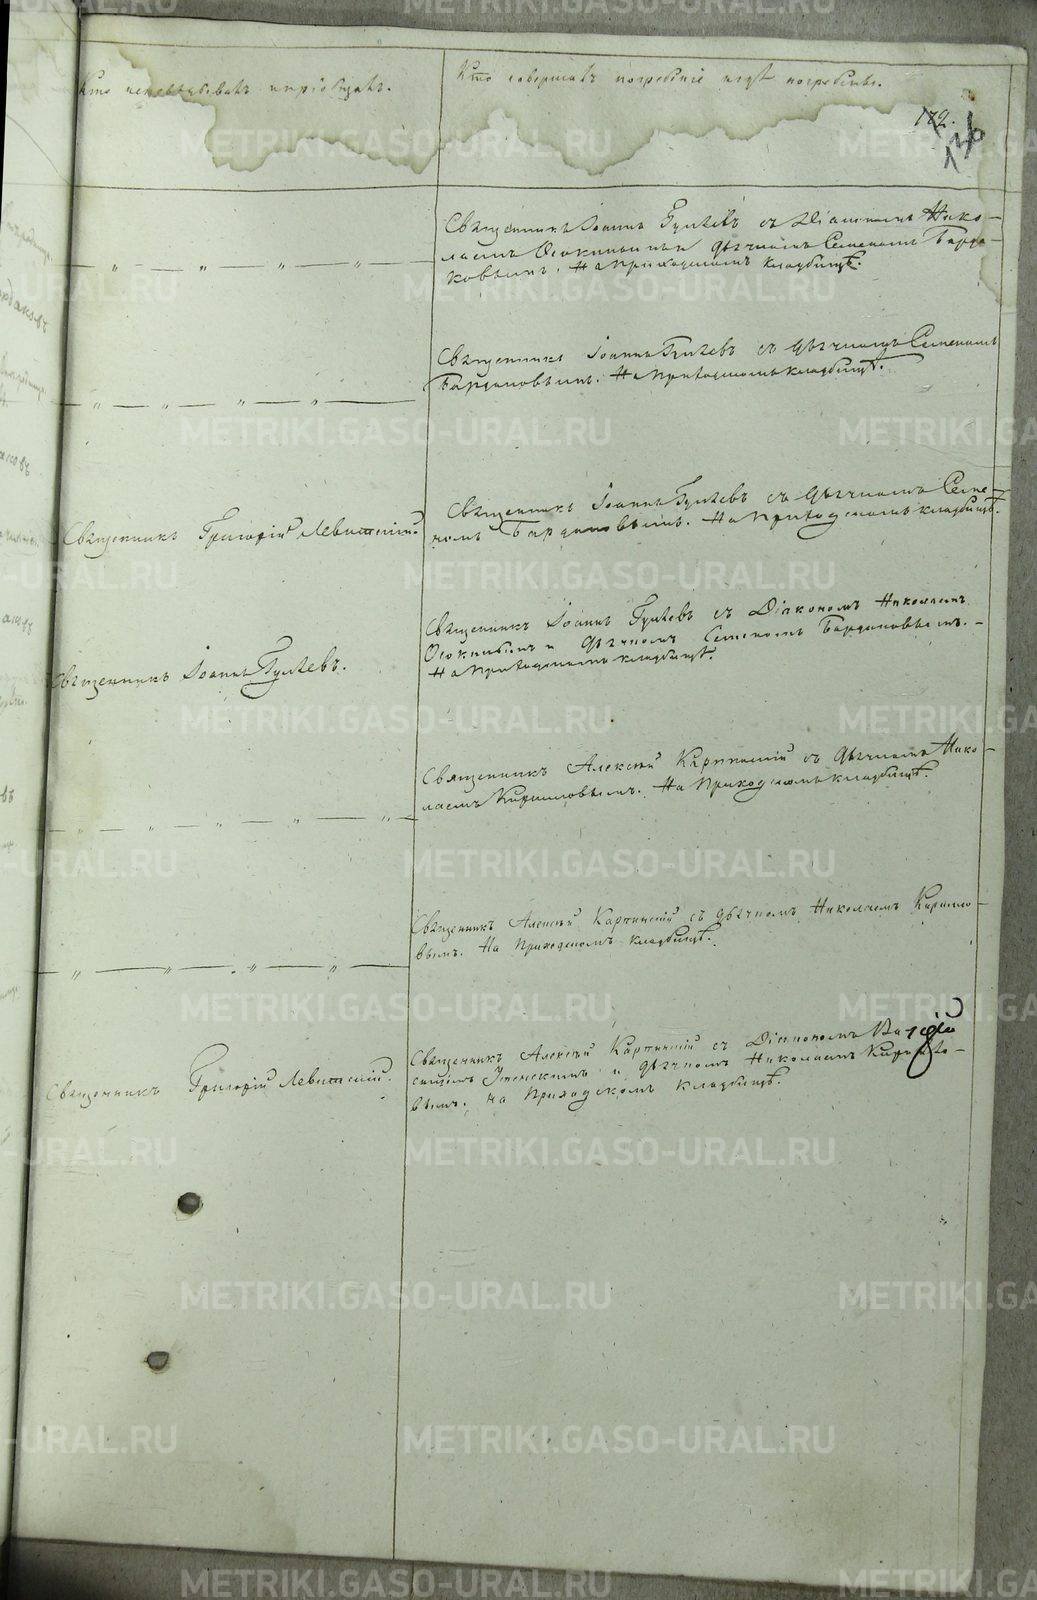 Кто исповѣдывалъ и пріобщалъ.
Кто совершалъ погребеніе и гдѣ погребены.
172.
136
Священникъ Іоаннъ Гуляевъ съ Діакономъ Нико-
лаемъ Осокинымъ и дьячкомъ Семеномъ Барда-
ковымъ. На приходскомъ кладбищѣ.
— „ — „ — „ — „ —
Священникъ Іоаннъ Гуляевъ съ дьячкомъ Семеномъ
Бардаковымъ. На приходскомъ кладбищѣ.
— „ — „ — „ — „ —
Священникъ Григорій Левитскій.
Священникъ Іоаннъ Гуляевъ съ дьячкомъ Семе-
номъ Бардаковымъ. На приходскомъ кладбищѣ.
Священникъ Іоаннъ Гуляевъ.
Священникъ Іоаннъ Гуляевъ съ Діакономъ Николаемъ
Осокинымъ и дьячкомъ Семеномъ Бардаковымъ. –
На приходскомъ кладбищѣ.
— „ — „ — „ — „ —
Священникъ Алексѣй Карпинскій съ дьячкомъ Нико-
лаемъ Кирилловымъ. На приходскомъ кладбищѣ.
— „ — „ — „ — „ —
Священникъ Алексѣй Карпинскій съ дьячкомъ Николаемъ Кирилло-
вымъ. На приходскомъ кладбищѣ.
Священникъ Григорій Левитскій.
Священникъ Алексѣй Карпинскій съ Діакономъ
и дьячкомъ Николаемъ Кирилло-
вымъ. на приходскомъ кладбищѣ.
METRIKI.GASO-URAL.RU